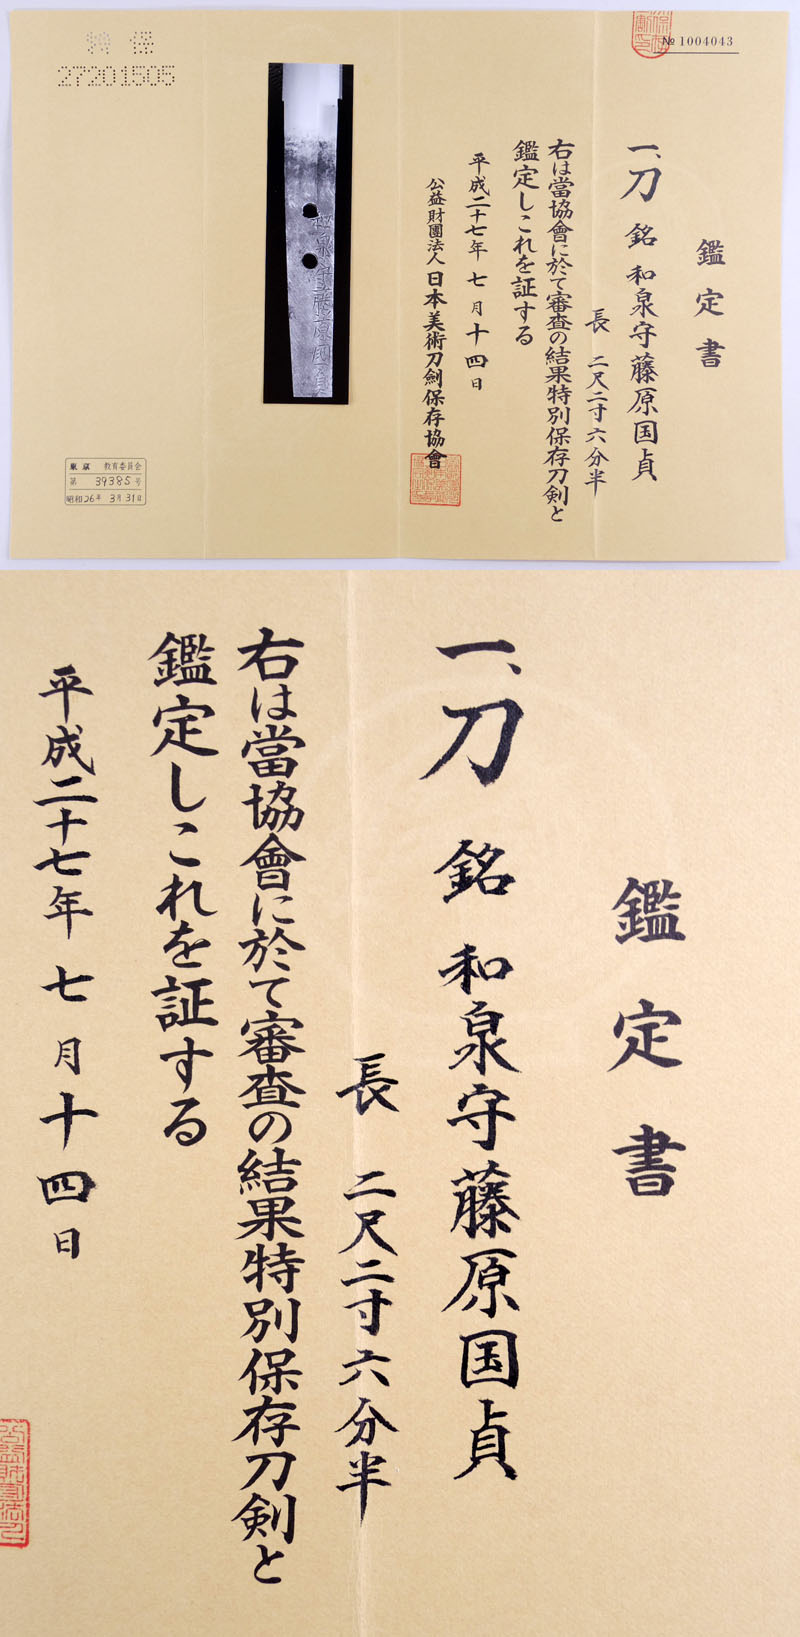 № 1004043
鑑定書
一、刀 銘 和泉守藤原国貞
長 二尺二寸六分半
右は當協會に於て審査の結果特別保存刀剣と
鑑定しこれを証する
平成二十七年 七月十四日
公益財團法人 日本美術刀劍保存協會
和泉守藤原国貞
特保
27201505
東京 教育委員会
第 39385 号
昭和26年 3月31日
鑑定書
一、刀 銘 和泉守藤原国貞
長 二尺二寸六分半
右は當協會に於て審査の結果特別保存刀剣と
鑑定しこれを証する
平成二十七年 七月十四日